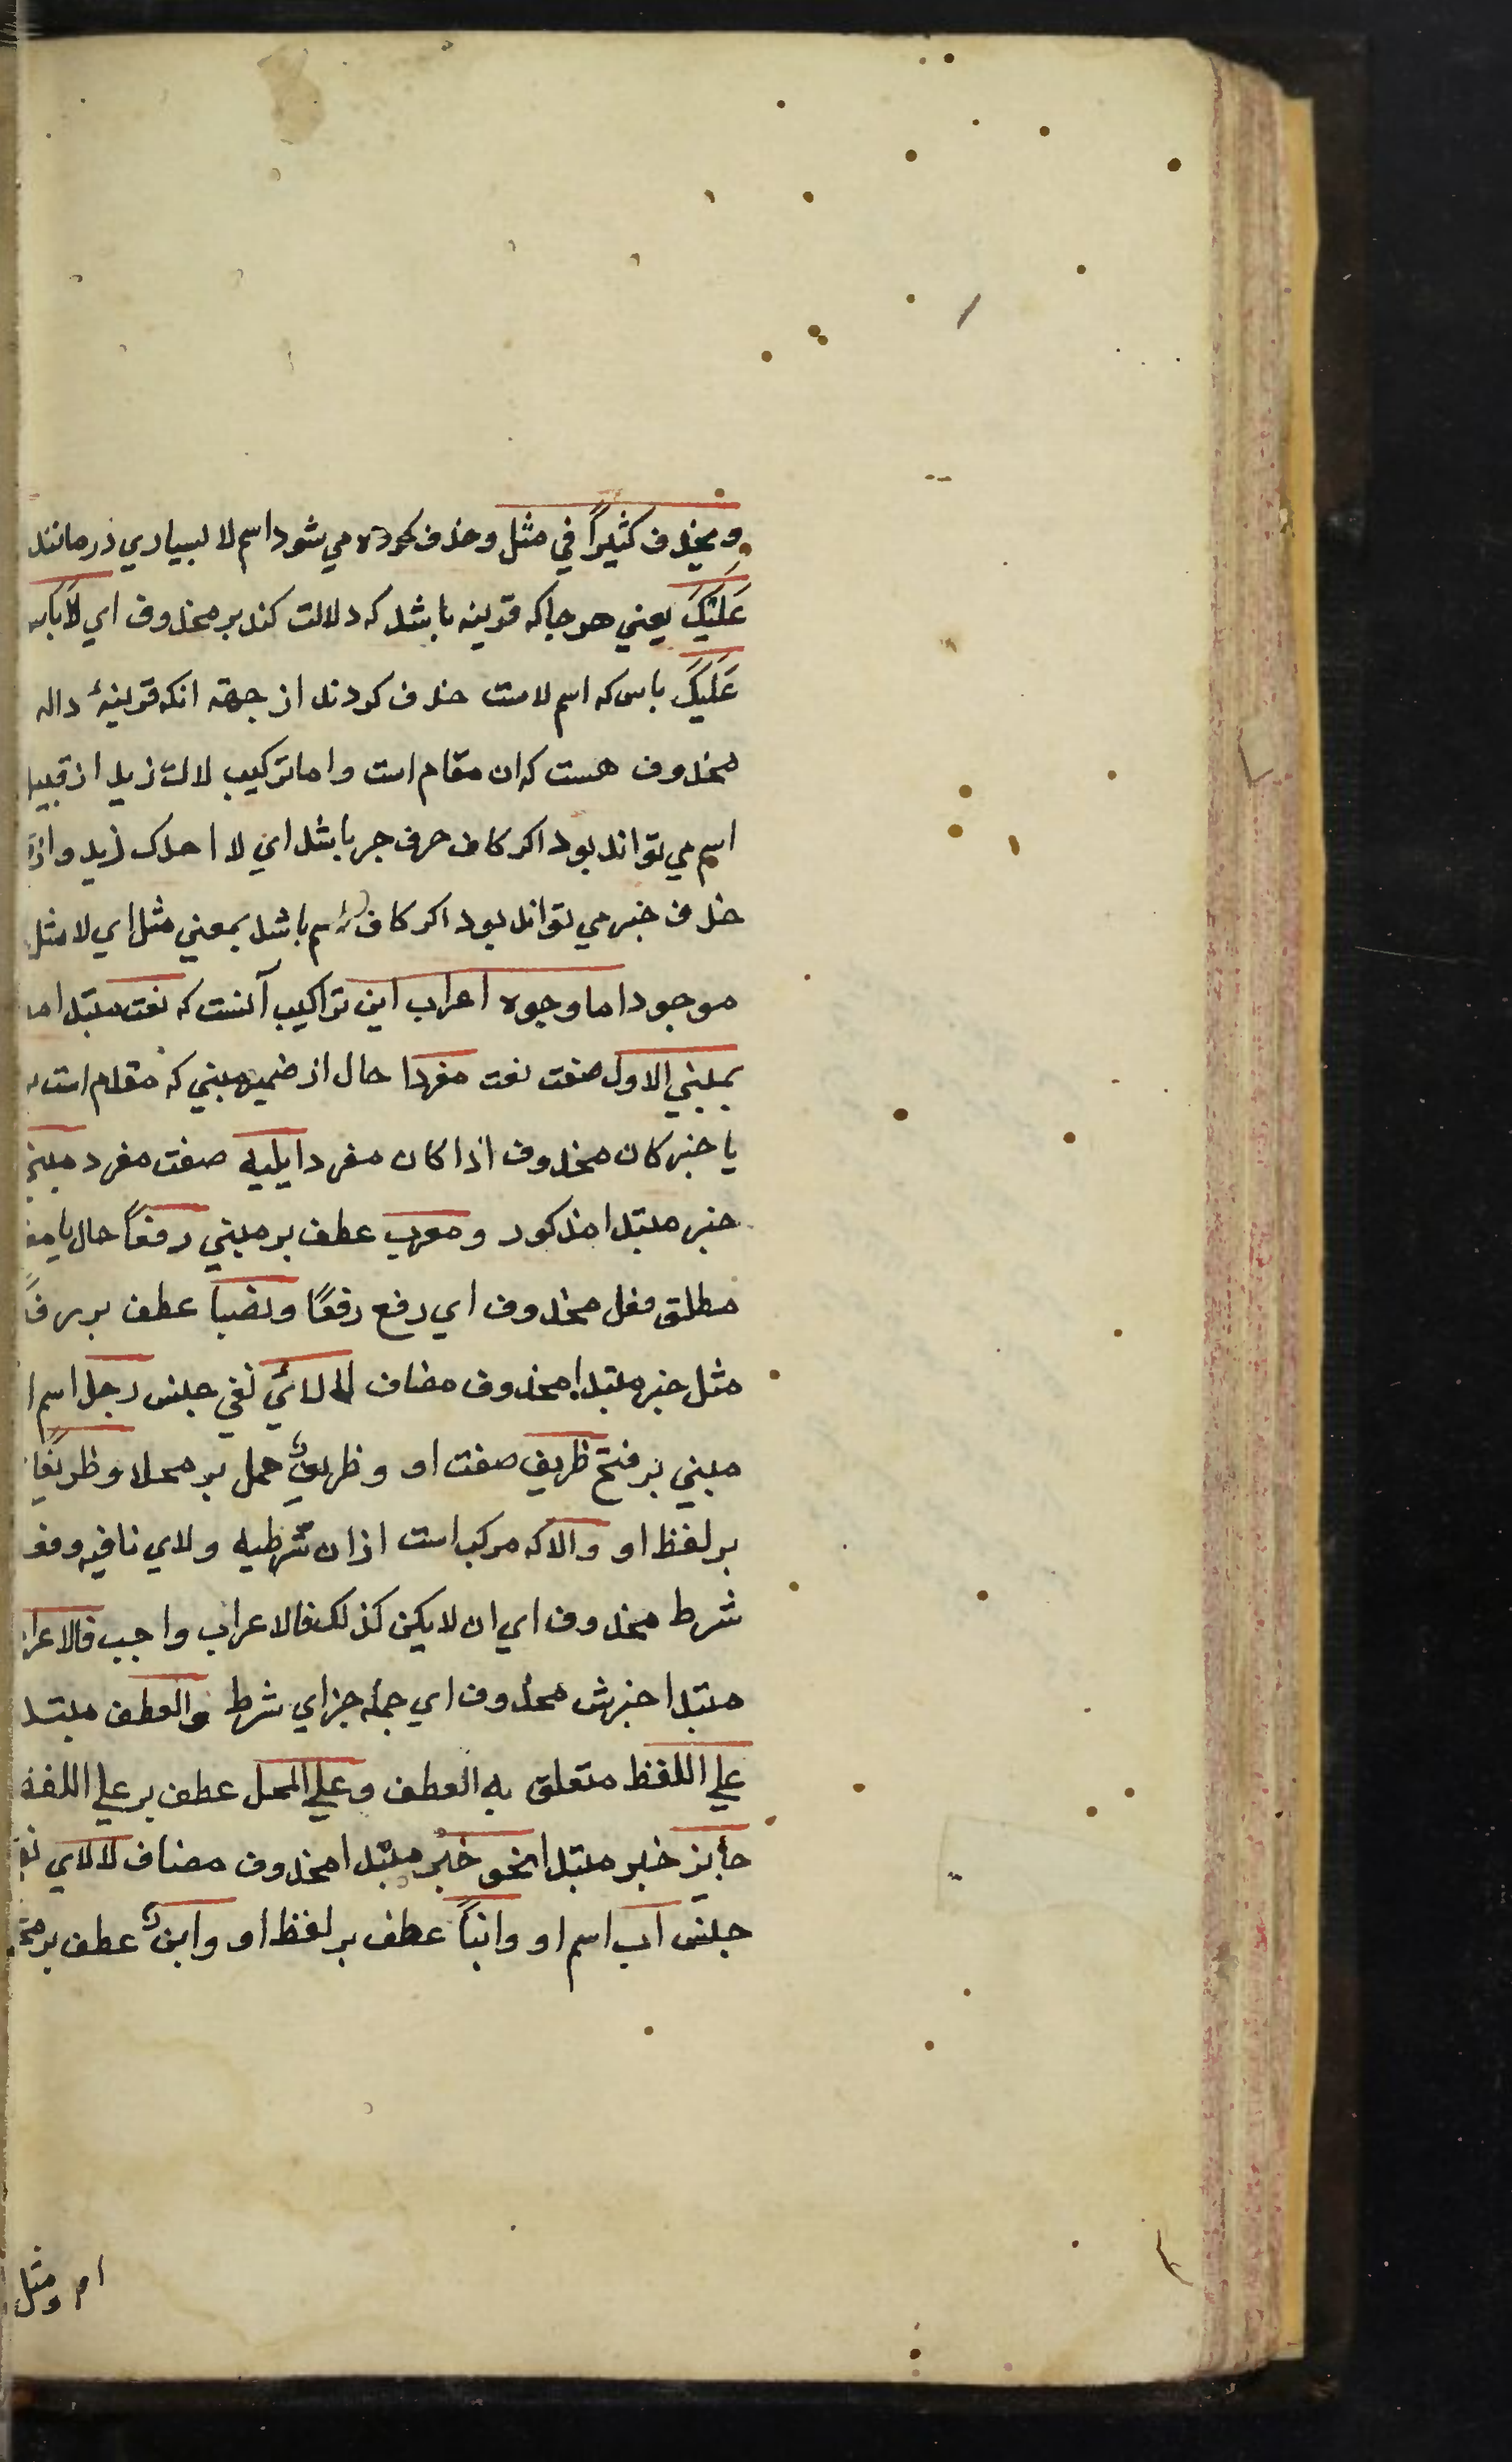 ويحذف كثيراً في مثل وحذف كرده مي شود اسم لا بسياري در مانند
عَلَيْكَ يعني هر جا كه قرينه باشد كه دلالت كند بر محذوف اي لا باس
عَلَيكَ باس كه اسم لاست حذف كردند از جهة انكه قرينۀ داله
محذوف هست كه ان مقام است واما تركيب لا كزيد از قبيل
اسم مي تواند بود اكر كاف حرف جر باشد اي لا احد كزيد واز
حذف خبر مي تواند بود اكر كاف اسم باشد بمعني مثل اي لا مثل
موجود اما وجوه اعراب اين تراكيب آنست كه نعت مبتدا
مبني الاول صفت نعت مفردا حال از ضمير مبني كه مقدم است
يا خبر كان محذوف اذا كان مفردا يليه صفت مفرد مبني
خبر مبتدا مذكور ومعرب عطف بر مبني رفعاً حال يا
مطلق فعل محذوف اي رفع رفعًا ونصبا عطف بر رفعاً
مثل خبر مبتدا محذوف مضاف لا لائي نفي جنس رجل اسم
مبني بر فتح ظريف صفت او وظريفٌ حمل بر محل وظريفًا
بر لفظ او والا كه مركب است از ان شرطيه ولاي نافيه وفعل
شرط محذوف اي ان لا يكن كذلك فالاعراب واجب فالاعراب
مبتدا خبرش محذوف اي جمله جزاي شرط والعطف مبتدا
علي اللفظ متعلق به العطف وعلي المحل عطف بر علي اللفظ
جايز خبر مبتدا نحو خبر مبتدا محذوف مضاف لا لاي نفي
جنس اب اسم او وابناً عطف بر لفظ او وابنٌ عطف بر محل
ومثل